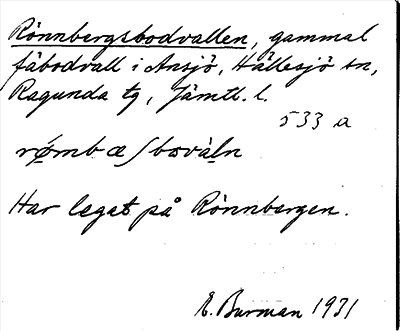 Rönnbergsbodvallen, gammal
fäbodvall i Ansjö, Hällesjö sn,
Ragunda tg, Jämtl. l.
533 a
Har legat på Rönnbergen.
E. Burman 1931